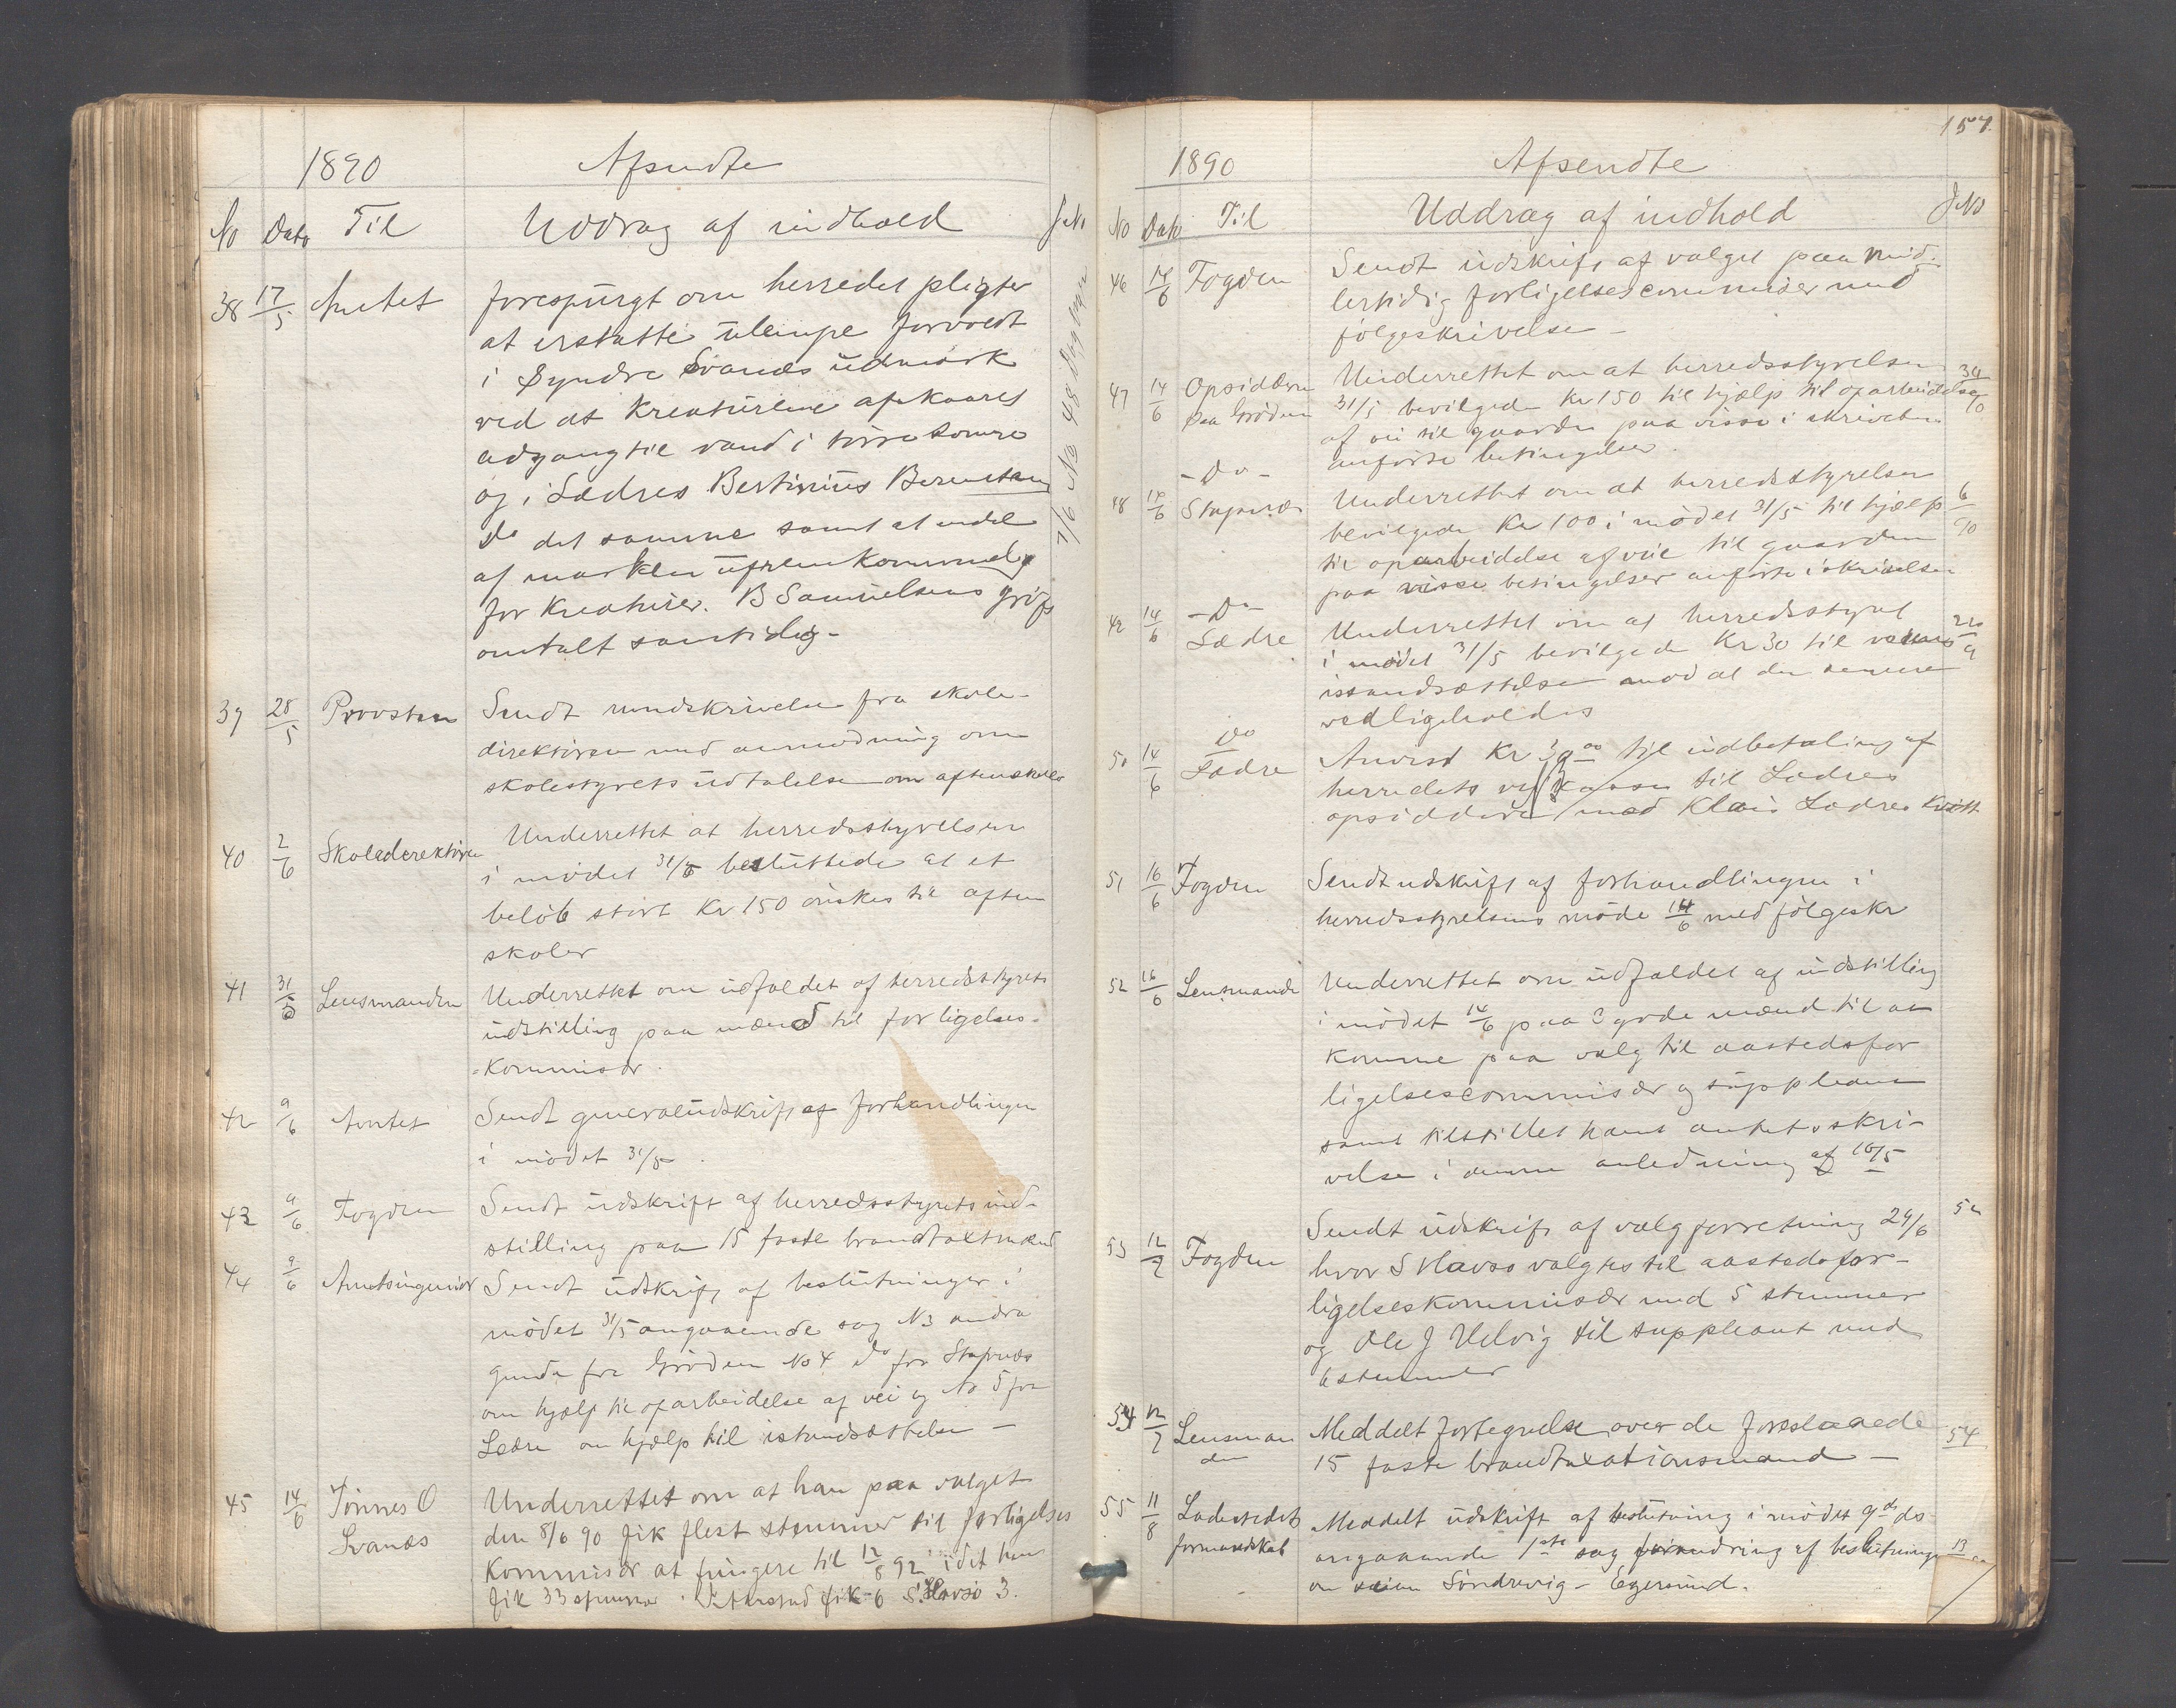 1890 Afsendte
No Dato Til Uddrag af indhold JNo
38 17/5 Amtet forespurgt om herredet pligter
at erstatte ulempe forvoldt
i Syndre Svanæs udmark
ved at Kreaturene afskaares
adgang til vand i tørre somre
og i Lædres Bertinius Berentsen
do det samme samt at endel
af marken ufremkommelig
for Kreaturer. B Samuelsens grøft
omtalt samtidig -
7/6 No 48 Dagbogen
39 28/5 Provsten Sendt rundskrivelse fra skole-
direktøren med anmodning om
skolestyrets udtalelse om aftenskoler
40 2/6 Skoledirektøren Underrettet at herredsstyrelsen
i mødet 31/5 besluttede at et
beløb stort Kr 150 ønskes til aften
skoler
41 31/5 Lensmanden Underrettet om udfaldet af herredsstyrets
indstilling paa mænd til forligelses-
kommisær.
42 9/6 Amtet Sendt generaludskrift af forhandlingen
i mødet 31/5.
43 9/6 Fogden Sendt udskrift af herredsstyrets ind-
stilling paa 15 faste brandtaxtmænd
44 9/6 Amtsingeniør Sendt udskrift af beslutninger i
mødet 31/5 angaaende sag N3 andra
gende fra Grøden No 4 do fra Stapnæs
om hjælp til oparbeidelse af vei og No 5 fra
Lædre om hjælp til istandsættelse -
45 14/6 Tønnes O Underrettet om at han paa valget
Svanæs den 8/6 90 fik flest stemmer til forligelses
Kommisær at fungere til 12/8 92 idet han
fik 33 stemmer. fik 6 S. Havsø 3.
157.
1890 Afsendte
No Dato Til Uddrag af indhold JNo
46 14/6 Fogden Sendt udskrift af valget paa mid-
lertidig forligelsescommisær med
følgeskrivelse -
47 14/6 Opsidderne Underrettet om at herredsstyrelsen 34
paa Grøden 31/5 bevilgede Kr 150 til hjælp til oparbeidelse 90
af vei til gaarden paa visse i skrivelsen
anførte betingelser.
48 14/6 - Do - Underrettet om at herredsstyrelsen
Stapnæs bevilgede Kr 100 i mødet 31/5 til hjælp 6/90
til oparbeidelse af veie til gaarden
paa visse betingelser anførte i skrivelsen
49 14/6 - Do - Underrettet om at herredsstyret
Lædre i mødet 31/5 bevilgede Kr 30 til veiens
istandsættelse mod at den senere
vedligeholdes
50 14/6 Do Anvist Kr 30 00 til udbetaling af
Lædre herredets veikasse til Lædres
opsiddere med Klaus Lædres Kvitt.
51 16/6 Fogden Sendt udskrift af forhandlingen i
herredsstyrelsens møde 14/6 med følgeskr
52 16/6 Lensmande Underrettet om udfaldet af indstilling
i mødet 14/6 paa 2 gode mænd til at
komme paa valg til aastedsfor
ligelsescommisær og suppleant
samt tilstillet ham amtets skri-
velse i denne anledning af 16/5
53 12/7 Fogden Sendt udskrift af valgforretning 29/6 52
hvor S Havsø valgtes til aastedsfor-
ligelseskommisær med 5 stemmer
og Ole J Helvig til suppleant med
6 stemmer
54 12/7 Lensman Meddelt fortegnelse over de foreslaaede 54
den 15 faste brandtaxationsmænd -
55 11/8 Ladestedets Meddelt udskrift af beslutning i mødet 9de ds
formandskab angaaende 1ste sag forandring af beslutningen 13
om veien Søndrevig - Egersund.